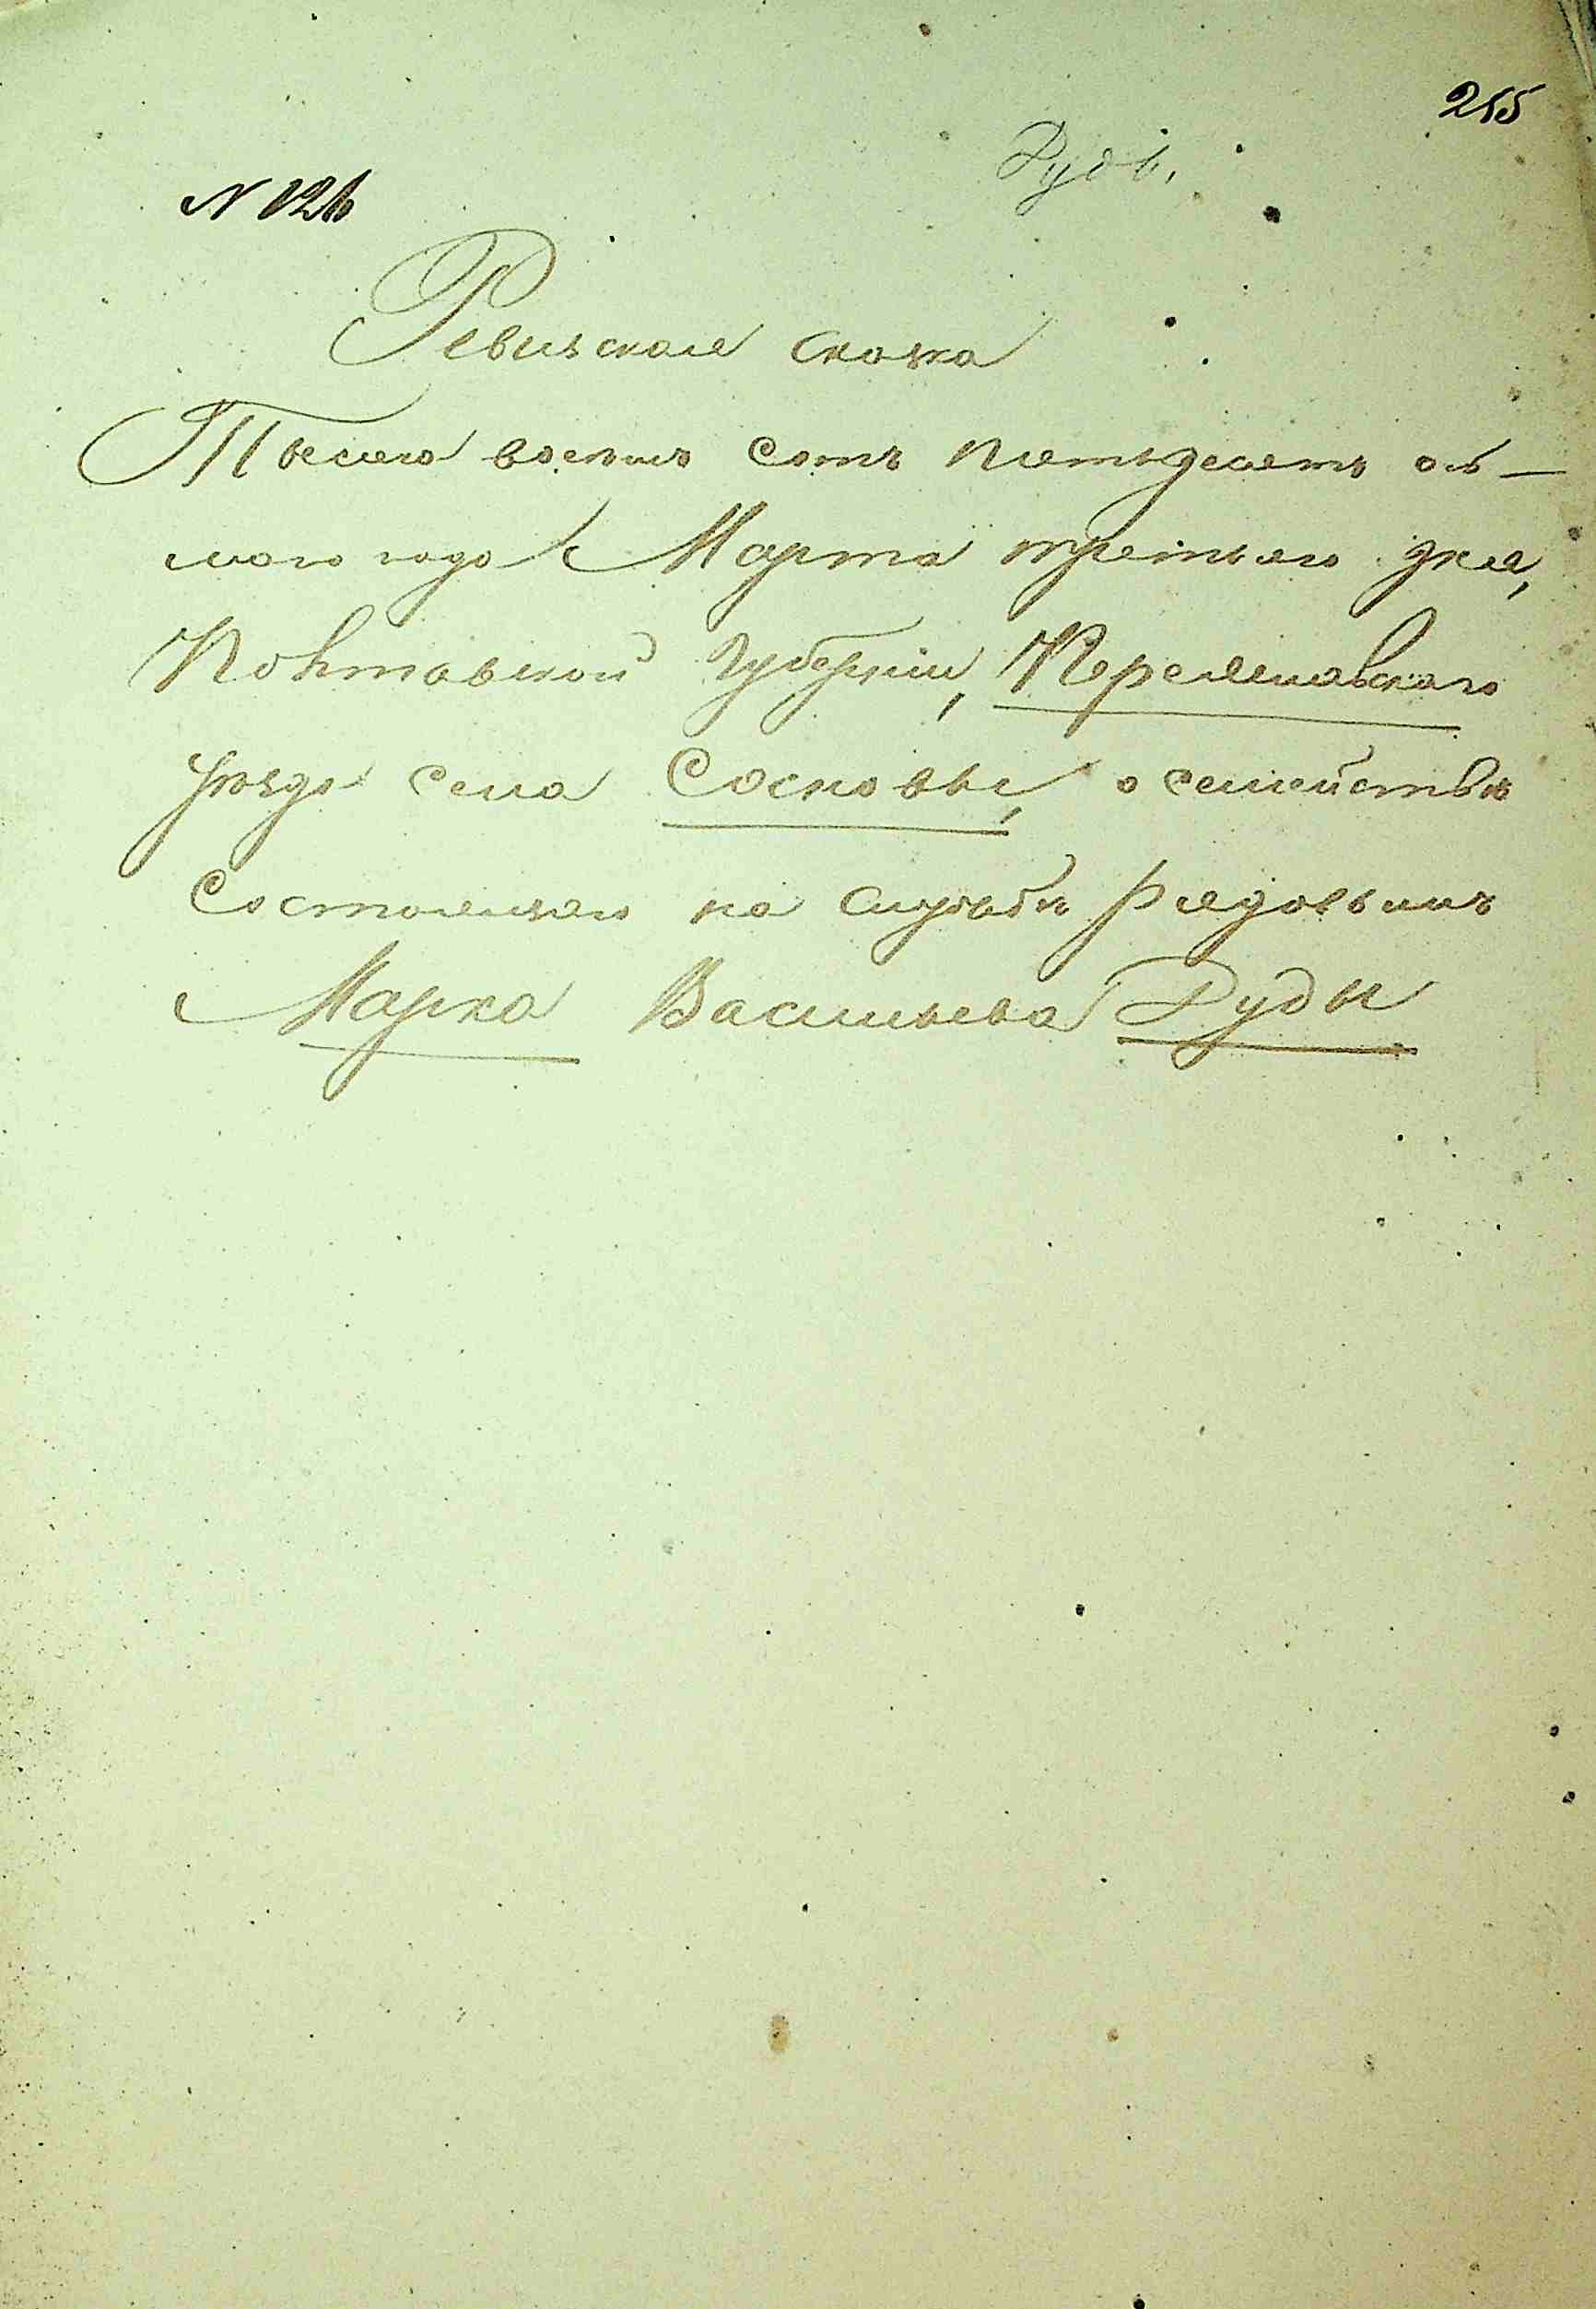 255
Рудь,
N 126
Ревизская сказка
Тысяча восемь сотъ пятьдесятъ ось-
маго года Марта третьяго дня,
Полтавской Губерніи, Переяславскаго
уѣзда села Сосновы, о семействѣ
Состоящаго на службѣ рядовымъ
Марка Васильева Руды